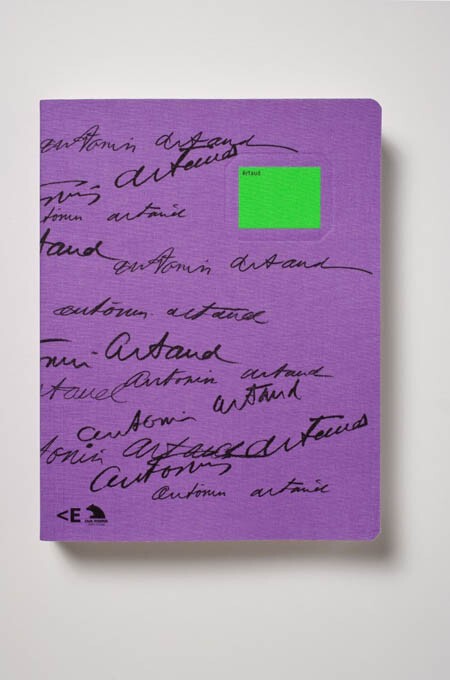 antonin artaud
artaud
Artaud
tonin
antonin artaud
artaud
antonin artaud
antonin artaud
onin Artaud
Antonin artaud
artaud
artaud
antonin
tonin artaud artaud
antonin
antonin artaud
<E